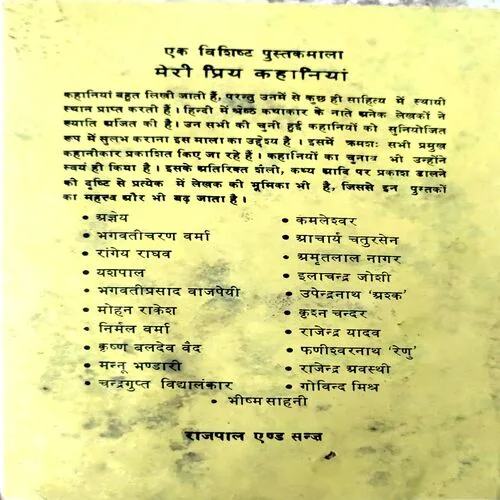 एक विशिष्ट पुस्तकमाला
मेरी प्रिय कहानियां
कहानियां बहुत लिखी जाती हैं, परन्तु उनमें से कुछ ही साहित्य में स्थायी
स्थान प्राप्त करती हैं। हिन्दी में श्रेष्ठ कथाकार के नाते अनेक लेखकों ने
ख्याति अर्जित की है। उन सभी की चुनी हुई कहानियों को सुनियोजित
रूप में सुलभ कराना इस माला का उद्देश्य है । इसमें क्रमशः सभी प्रमुख
कहानीकार प्रकाशित किए जा रहे हैं । कहानियों का चुनाव भी उन्होंने
स्वयं ही किया है। इसके अतिरिक्त शैली, कथ्य आदि पर प्रकाश डालने
की दृष्टि से प्रत्येक में लेखक की भूमिका भी है, जिससे इन पुस्तकों
का महत्त्व और भी बढ़ जाता है।
• अज्ञेय
• भगवतीचरण वर्मा
• रांगेय राघव
• यशपाल
• भगवतीप्रसाद वाजपेयी
• मोहन राकेश
• निर्मल वर्मा
• कृष्ण बलदेव वैद
• मन्नू भण्डारी
• चन्द्रगुप्त विद्यालंकार
• कमलेश्वर
• आचार्य चतुरसेन
• अमृतलाल नागर
• इलाचन्द्र जोशी
• उपेन्द्रनाथ 'अश्क'
• कृश्न चन्दर
• राजेन्द्र यादव
• फणीश्वरनाथ 'रेणु'
• राजेन्द्र अवस्थी
• गोविन्द मिश्र
• भीष्म साहनी
राजपाल एण्ड सन्ज़